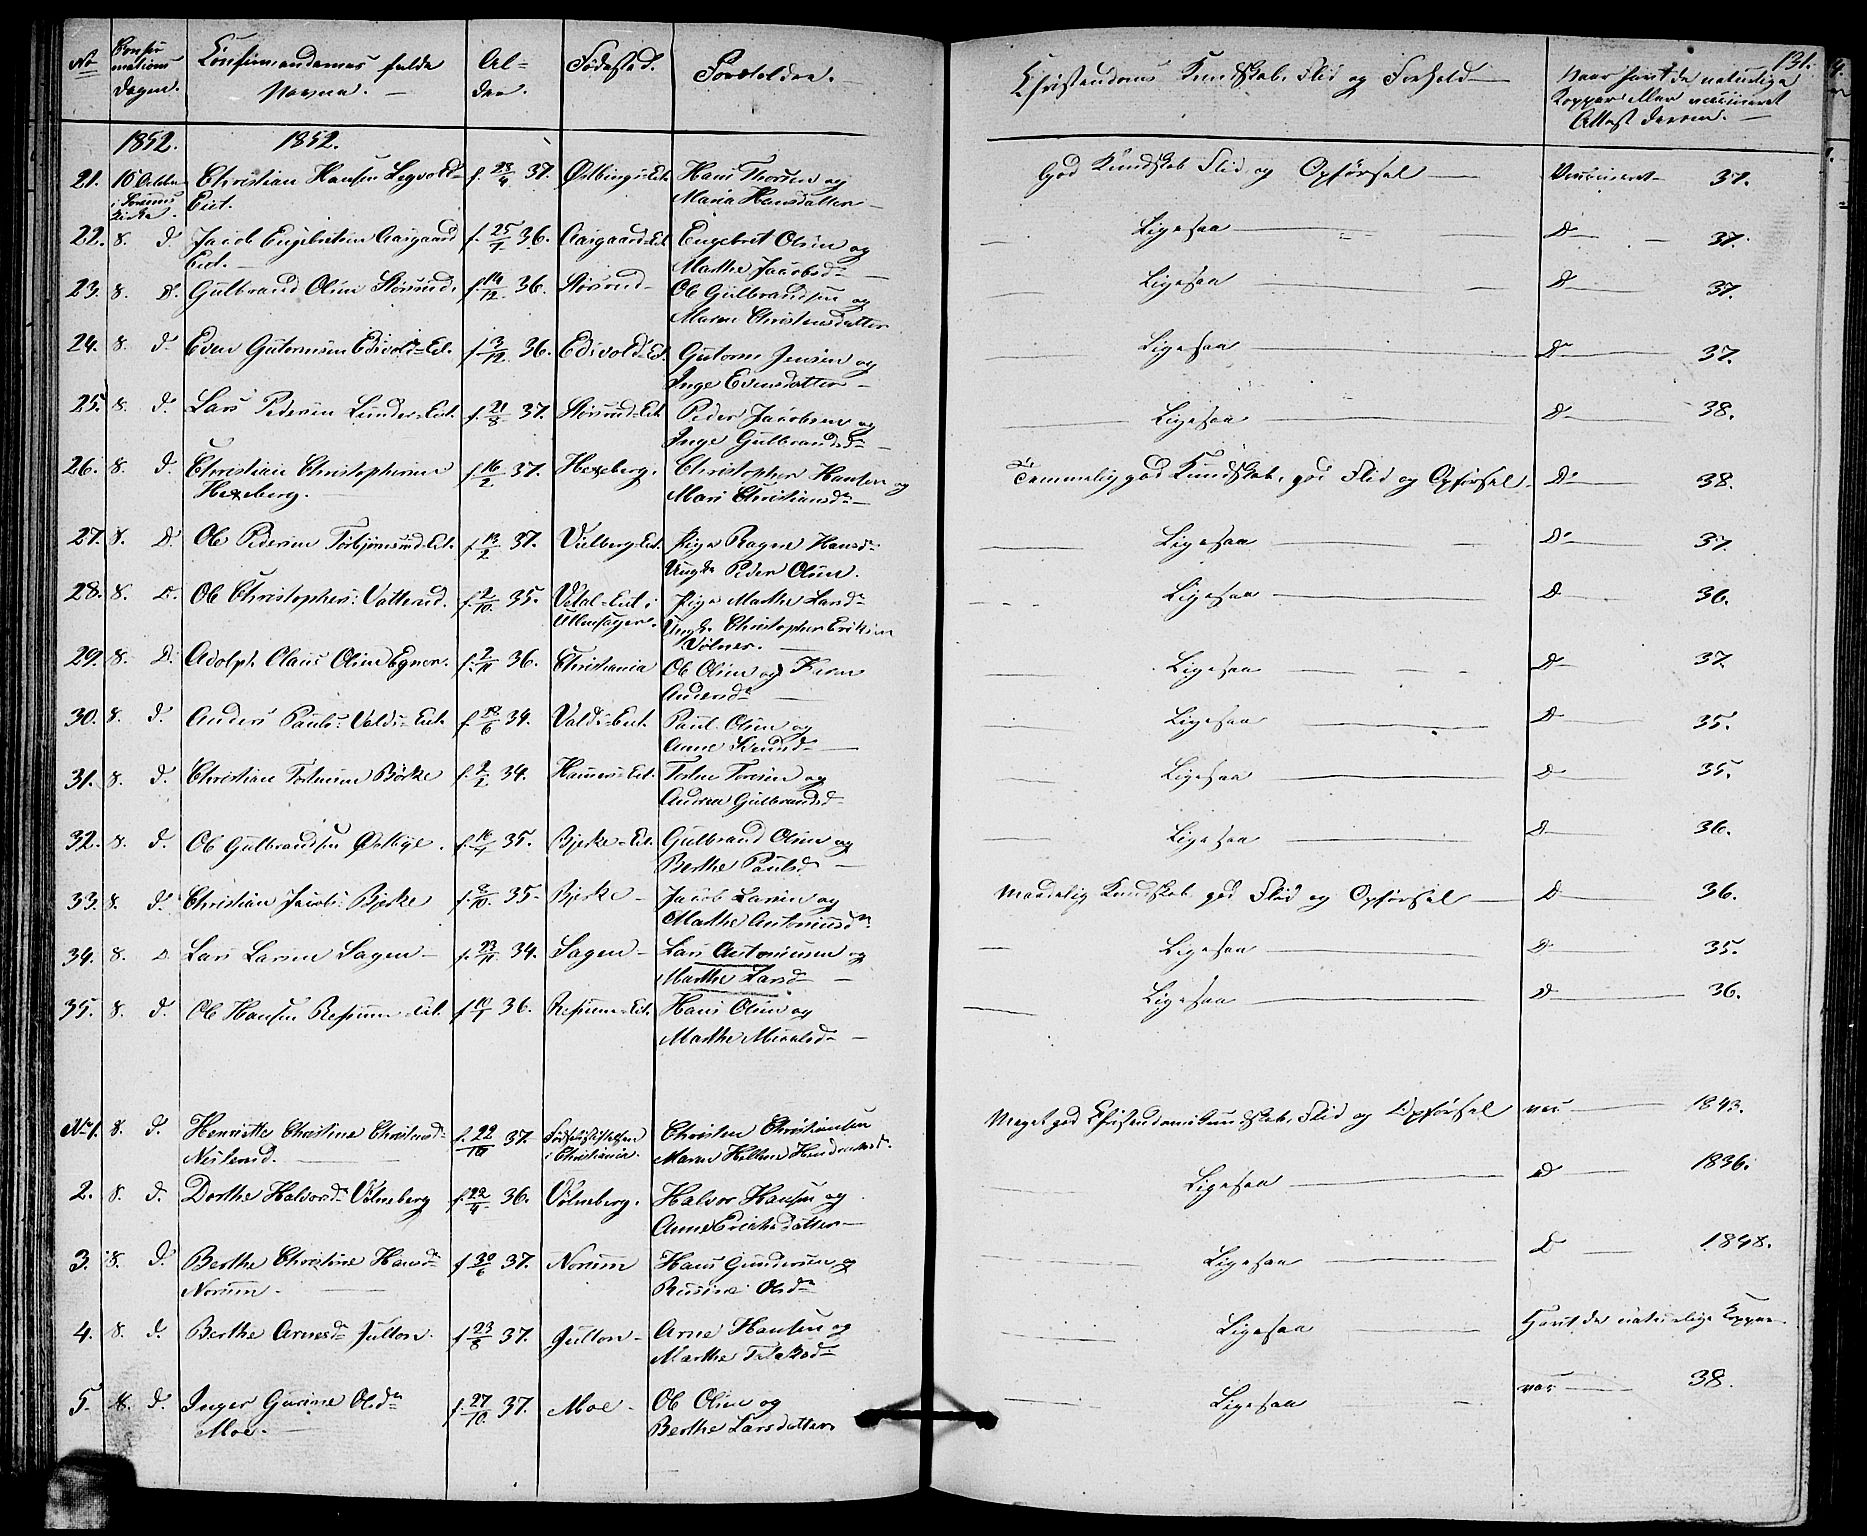 131.
No Confirmations Dagen. Confirmandernes fulde Navne. Alder. Fødested. Forældre. Christendoms Kundskab, Flid og Forhold Naar havt de naturlige Kopper eller vaccineret Attest derom.
1852. 1852.
21. 10 October i Sørums Kirke. Christian Hansen Legvold Eiet. f. 23/4 37. Østbings-Eiet. Hans Thorsen og Maria Hansdatter God Kundskab Flid og Opførsel Vaccineret 37.
22. 8. d Jacob Engebretsen Aasgaard Eiet. f. 25/7 36. Aasgaard-Eiet Engebret Olsen og Marthe Jacobsd. Ligesaa D 37.
23. 8. d. Gulbrand Olsen Størsrud. f. 14/12 36. Størsrud Ole Gulbrandsen og Maren Christensdatter Ligesaa D 37.
24. 8. d. Even Gutormsen Edsvold-Eiet. f. 3/12 36. Edsvold-Eiet Gutorm Jensen og Inge Evensdatter Ligesaa D 37.
25. 8. d. Lars Pedersen Lunder-Eiet. f. 21/8 37. Størsrud-Eiet Peder Jacobsen og Inge Gulbrandsd. Ligesaa D 38.
26. 8. d. Christian Christophersen Hexeberg. f. 16/2 37. Hexeberg. Christopher Hansen og Mari Christiansd. Temmelig god Kundskab, god Flid og Opførsel D 38.
27. 8. d. Ole Pedersen Torbjørnsrud-Eiet. f. 13/2 37. Vilberg-Eiet. Pige Ragne Hansd. Ungk. Peder Olsen. Ligesaa D 37
28. 8. d. Ole Christophers. Vatterud. f. 2/10 35. Vetal-Eiet i Ullensager. Pige Marthe Larsd. Ungk. Christopher Eriksen Vølner. Ligesaa D 36.
29. 8. d. Adolph Claus Olsen Egner. f. 2/11 36. Christiania Ole Olsen og Karen Andersd. Ligesaa D 37.
30. 8. d. Anders Pauls. Valds-Eiet f. 12/6 34. Valds-Eiet. Paul Olsen og Anne Knudsd. Ligesaa D 35.
31. 8. d. Christian Torstensen Børke f. 2/2 34. Hammers-Eiet. Torsten Torsten og Andrea Gulbrandsd. Ligesaa D 35.
32. 8. d. Ole Gulbrandsen Østbye. f. 16/4 35. Bjerke-Eiet. Gulbrand Olsen og Berthe Paulsd Ligesaa D 36.
33. 8. d. Christian Jacobs. Bjerke f. 8/10. 35. Bjerke Jacob Larsen og Marthe Antoniusd. Maadelig Kundskab god Flid og Opførsel D 36.
34. 8. d Lars Larsen Sagen f. 23/11 34. Sagen Lars Antoniusen og Marthe Larsd Ligesaa D 35.
35. 8. d. Ole Hansen Refsum-Eiet. f 14/1 36. Refsum-Eiet. Hans Olsen og Marthe Mikkelsd Ligesaa D 36.
No 1. 8. d. Henriette Christine Christensd. f. 22/10 37. Fødselsstiftelsen i Christiania. Christen Christiansen Maren Helene Hendriksd. Meget god Christendomskundskab, Flid og Opførsel vac 1843.
2. 8. d. Dorthe Halvorsd. Vølneberg f. 22/4 36. Vølneberg. Halvor Hansen og Anne Erichsdatter Ligesaa D 1836.
3. 8. d. Berthe Christine Hansd. Norum. f 30/6 37. Norum Hans Gundersen og Rusine Olsd. Ligesaa D 1848.
4. 8. d. Berthe Arnesd. Julton. f 23/8 37. Julton Arne Hansen og Marthe Ligesaa Havt de naturlige Kopper
5. 8. d. Inger Gurine Olsd. Moe. f. 27/10 37. Moe Ole Olsen og Berthe Larsdatter Ligesaa vac 38.